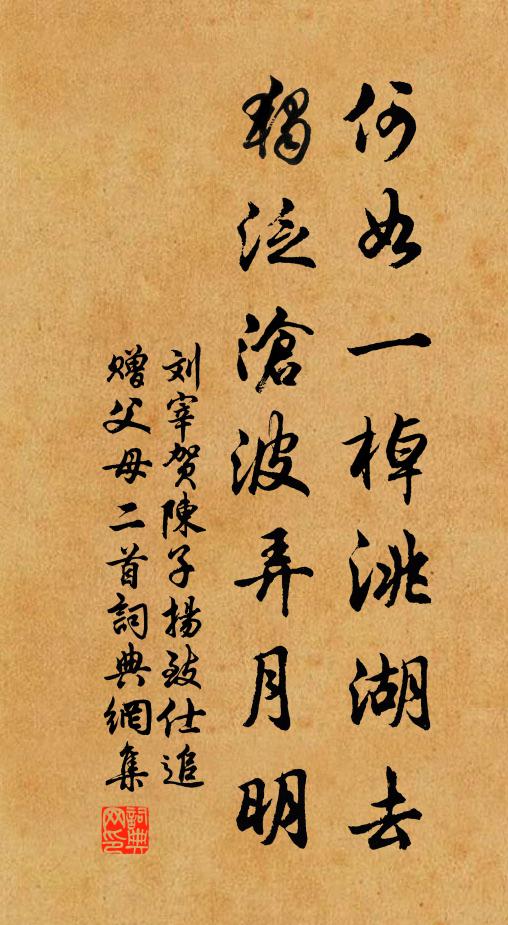 何如一棹洮湖去
獨泛滄波弄月明
刘宰贺陳子揚致仕追
赠父母二首詞典網集
詞典网印